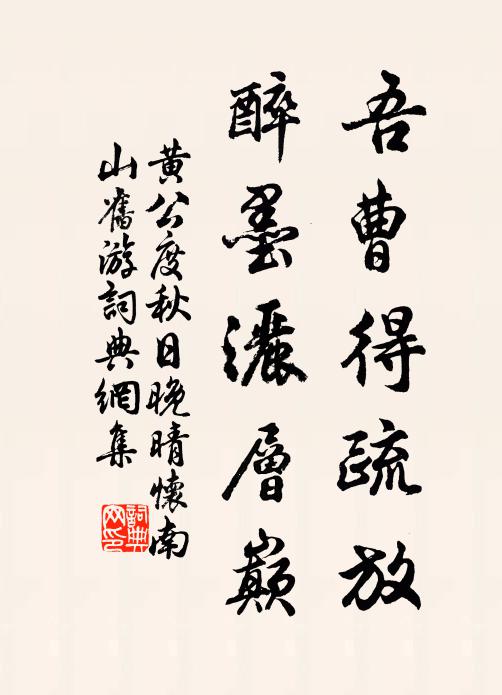 吾曹得疏放
醉墨灑層巔
黄公度秋日晚晴懷南
山舊游詞典網集
詞典網印